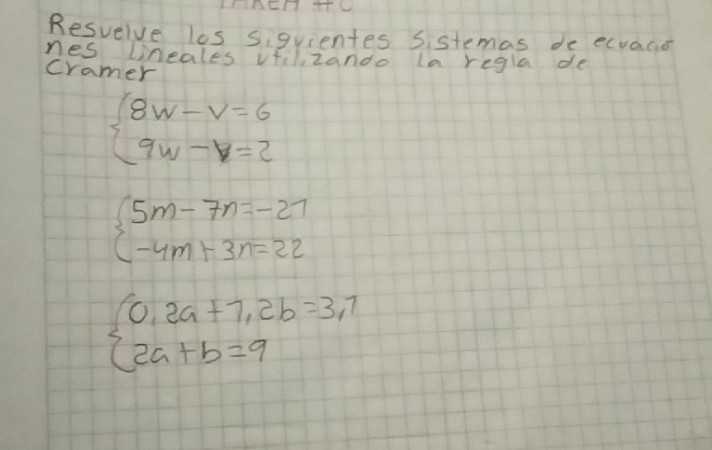 TAREA
Resuelve los siguientes sistemas de ecuacio
nes lineales utilizando la regla de
Cramer
8w - v = 6
9w - v = 2
5m - 7n = -21
-4m + 3n = 22
0,2a + 1,2b = 3,1
2a + b = 9